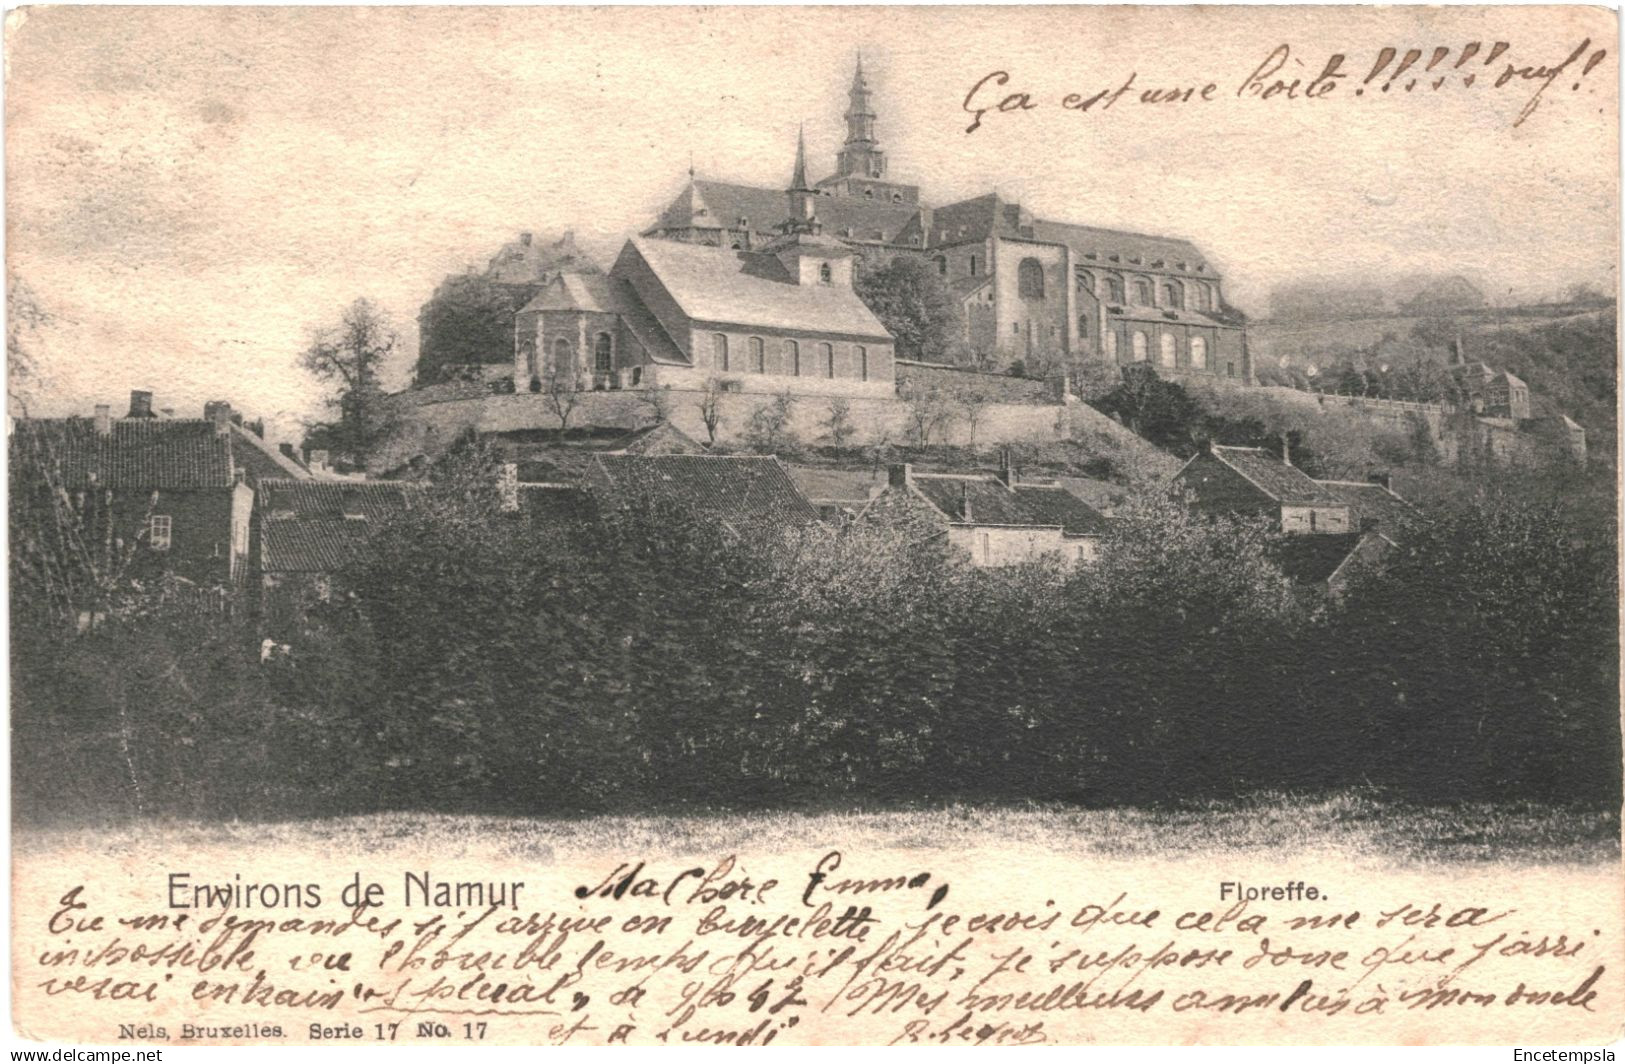 Ça est une boîte !!!!!! ouf!
Environs de Namur
Ma Chère Emma,
Floreffe.
Tu me demandes si j'arrive en bicyclette, je crois que cela me sera
impossible, vu l'horrible temps qu'il fait, je suppose donc que j'arri
verai en train "spécial" à 9h 47 Mes meilleurs amitiés à mon oncle
Nels, Bruxelles. Serie 17 No. 17
et à Lundi
Encetempsla